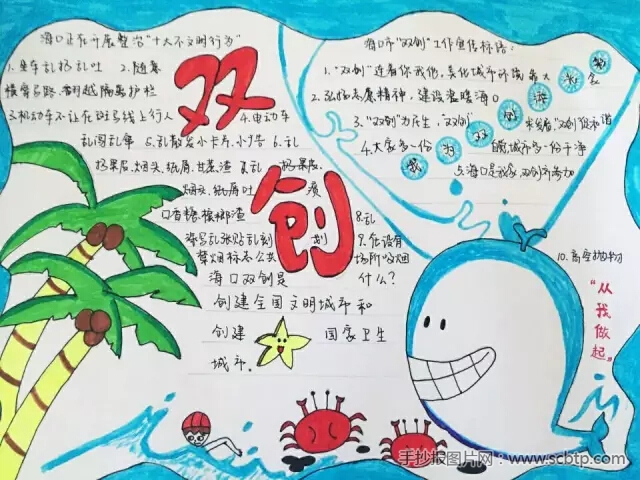 海口正在开展整治"十大不文明行为"
1. 坐车乱扔乱吐 2. 随意
横穿马路、翻越隔离护栏
3. 机动车不让在斑马线上行人
4. 电动车
乱闯乱窜 5. 乱散发小卡片、小广告 6. 乱
扔果屑、烟头、纸屑、甘蔗渣
扔果屑、
烟头、纸屑吐
口香糖、槟榔渣
8. 乱
涂写乱张贴乱刻划
9. 在设有
禁烟标志公共场所吸烟
10. 高空抛物
双
创
海口双创是什么？
创建全国文明城市和
创建国家卫生
城市。
海口市"双创"工作宣传标语：
1. "双创"连着你我他，美化城市环境靠大家
2. 弘扬志愿精神，建设温暖海口
3. "双创"为民生，"双创"
4. 大家多一份
城市多一份干净
5. 海口是我家，双创齐参加
我 为 双 创
"从我做起"
手抄报图片网：www.scbtp.com